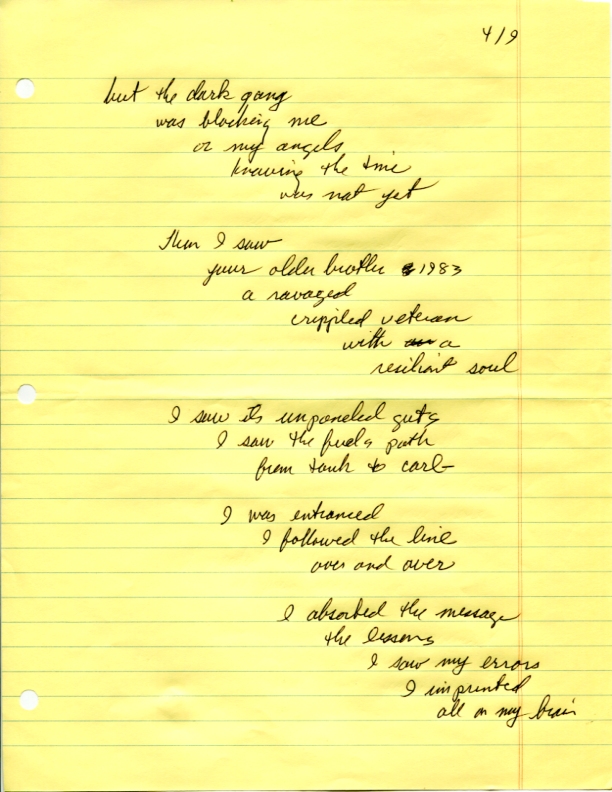 4/9
but the dark gang
was blocking me
or my angels
knowing the time
was not yet
Then I saw
your older brother 1983
a ravaged
crippled veteran
with a
resilient soul
I saw its unpaneled guts
I saw the fuels path
from tank to carb
I was entranced
I followed the line
over and over
I absorbed the message
the lessons
I saw my errors
I imprinted
all on my brain